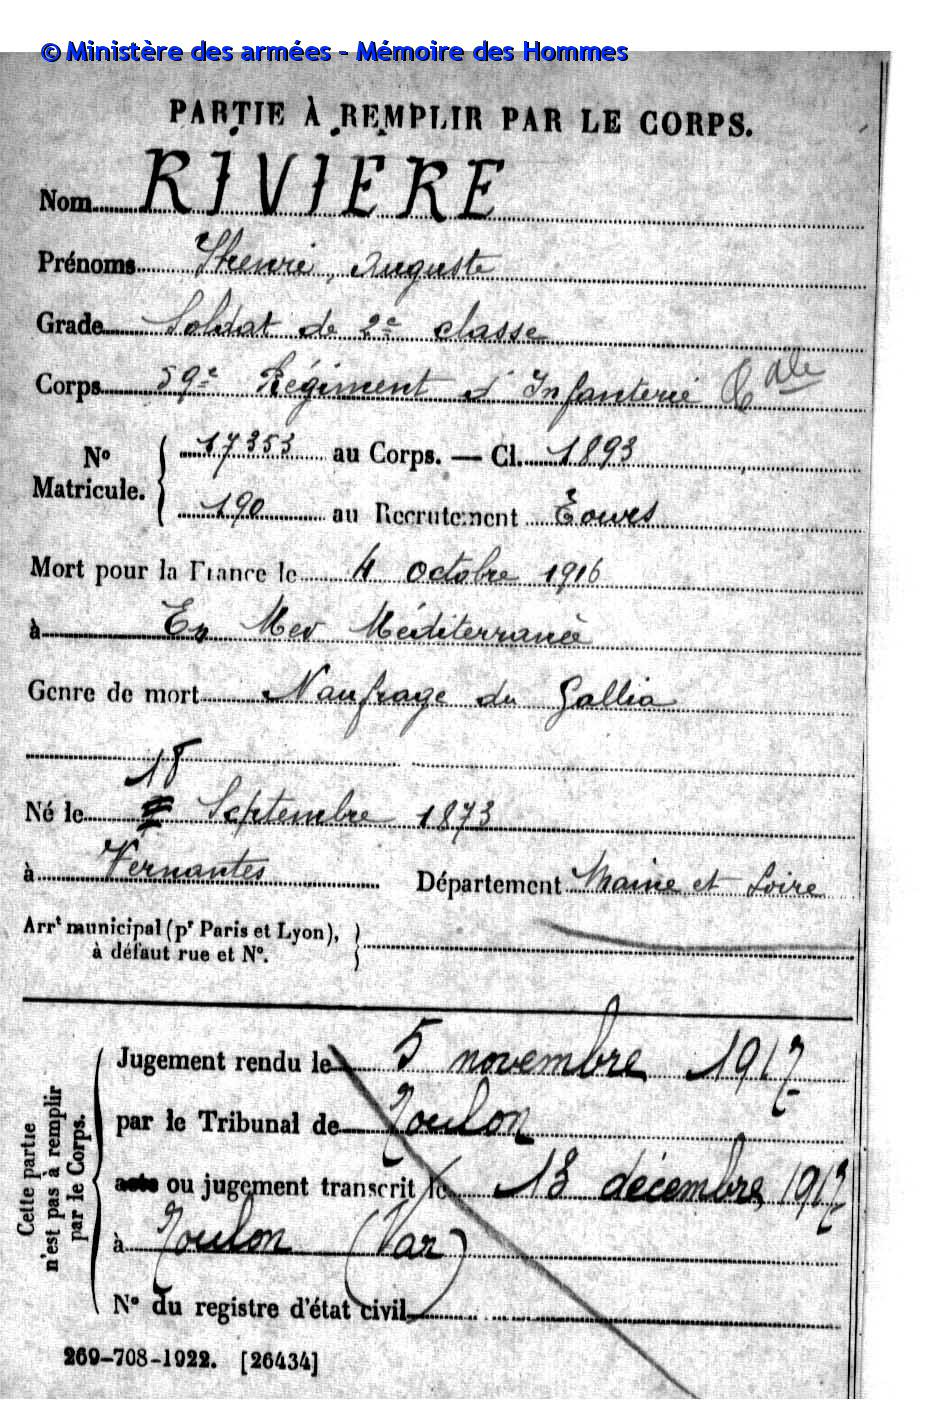 © Ministère des armées - Mémoire des Hommes
PARTIE À REMPLIR PAR LE CORPS.
Nom RIVIERE
Prénoms Henri, Auguste
Grade Soldat de 2e classe
Corps 59e Régiment d'Infanterie Cale
No Matricule. 17353 au Corps. — Cl. 1893
190 au Recrutement Tours
Mort pour la France le 4 octobre 1916
à En Mer Méditerranée
Genre de mort Naufrage du Gallia
18
Né le Septembre 1873
à Vernantes Département Maine et Loire
Arrt municipal (pr Paris et Lyon),
à défaut rue et No.
Cette partie n'est pas à remplir par le Corps.
Jugement rendu le 5 novembre 1917
par le Tribunal de Toulon
acte ou jugement transcrit le 13 décembre 1917
à Toulon (Var)
No du registre d'état civil
269-708-1922. [26434]